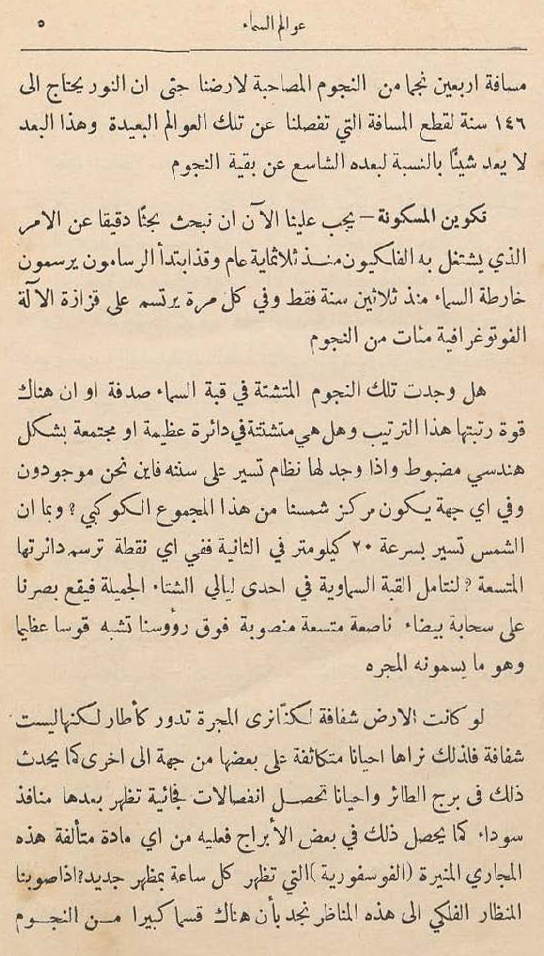 عوالم السماء ٥
مسافة اربعين نجما من النجوم المصاحبة لارضنا حتى ان النور يحتاج الى
١٤٦ سنة لقطع المسافة التي تفصلنا عن تلك العوالم البعيدة وهذا البعد
لا يعد شيئًا بالنسبة لبعده الشاسع عن بقية النجوم
تكوين المسكونة – يجب علينا الآن ان نبحث بحثًا دقيقا عن الامر
الذي يشتغل به الفلكيون منذ ثلاثماية عام وقذابتدأ الرسامون يرسمون
خارطة السماء منذ ثلاثين سنة فقط وفي كل مرة يرتسم على قزازة الآلة
الفوتوغرافية مئات من النجوم
هل وجدت تلك النجوم المتشتة في قبة السماء صدفة او ان هناك
قوة رتبتها هذا الترتيب وهل هي متشتتة في دائرة عظيمة او مجتمعة بشكل
هندسي مضبوط واذا وجد لها نظام تسير على سننه فاين نحن موجودون
وفي اي جهة يكون مركز شمسنا من هذا المجموع الكوكبي ? وبما ان
الشمس تسير بسرعة ٢٠ كيلومتر في الثانية ففي اي نقطة ترسم دائرتها
المتسعة ? لنتامل القبة السماوية في احدى ليالي الشتاء الجميلة فيقع بصرنا
على سحابة بيضاء ناصعة متسعة منصوبة فوق رؤوسنا تشبه قوسا عظيما
وهو ما يسمونه المجره
لو كانت الارض شفافة لكنّا نرى المجرة تدور كأطار لكنها ليست
شفافة فلذلك نراها احيانا متكاثفة على بعضها من جهة الى اخرى كما يحدث
ذلك في برج الطائر واحيانا تحصل انفصالات فجائية تظهر بعدها منافذ
سوداء كما يحصل ذلك في بعض الأبراج فعليه من اي مادة متألفة هذه
المجاري المنيرة (الفوسفورية) التي تظهر كل ساعة بمظهر جديد? اذا صوبنا
المنظار الفلكي الى هذه المناظر نجد بأن هناك قسما كبيرا من النجوم